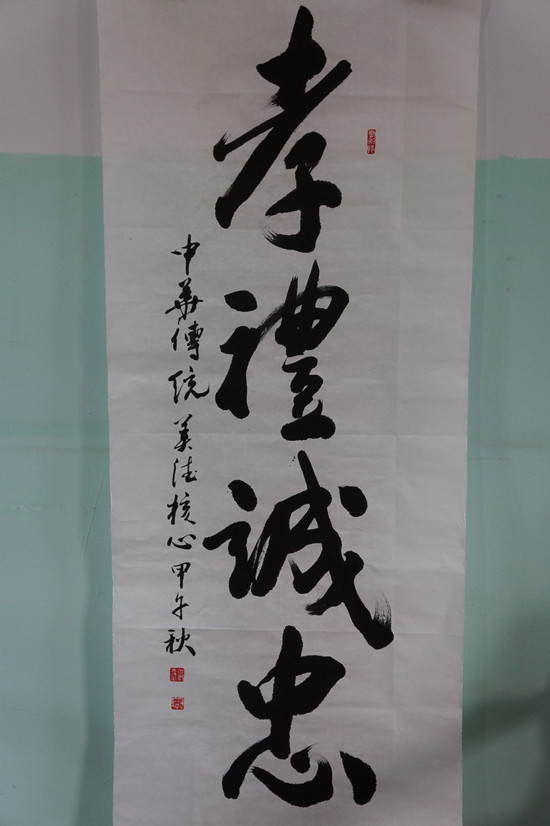 孝禮誠忠
中華傳統美德核心甲午秋